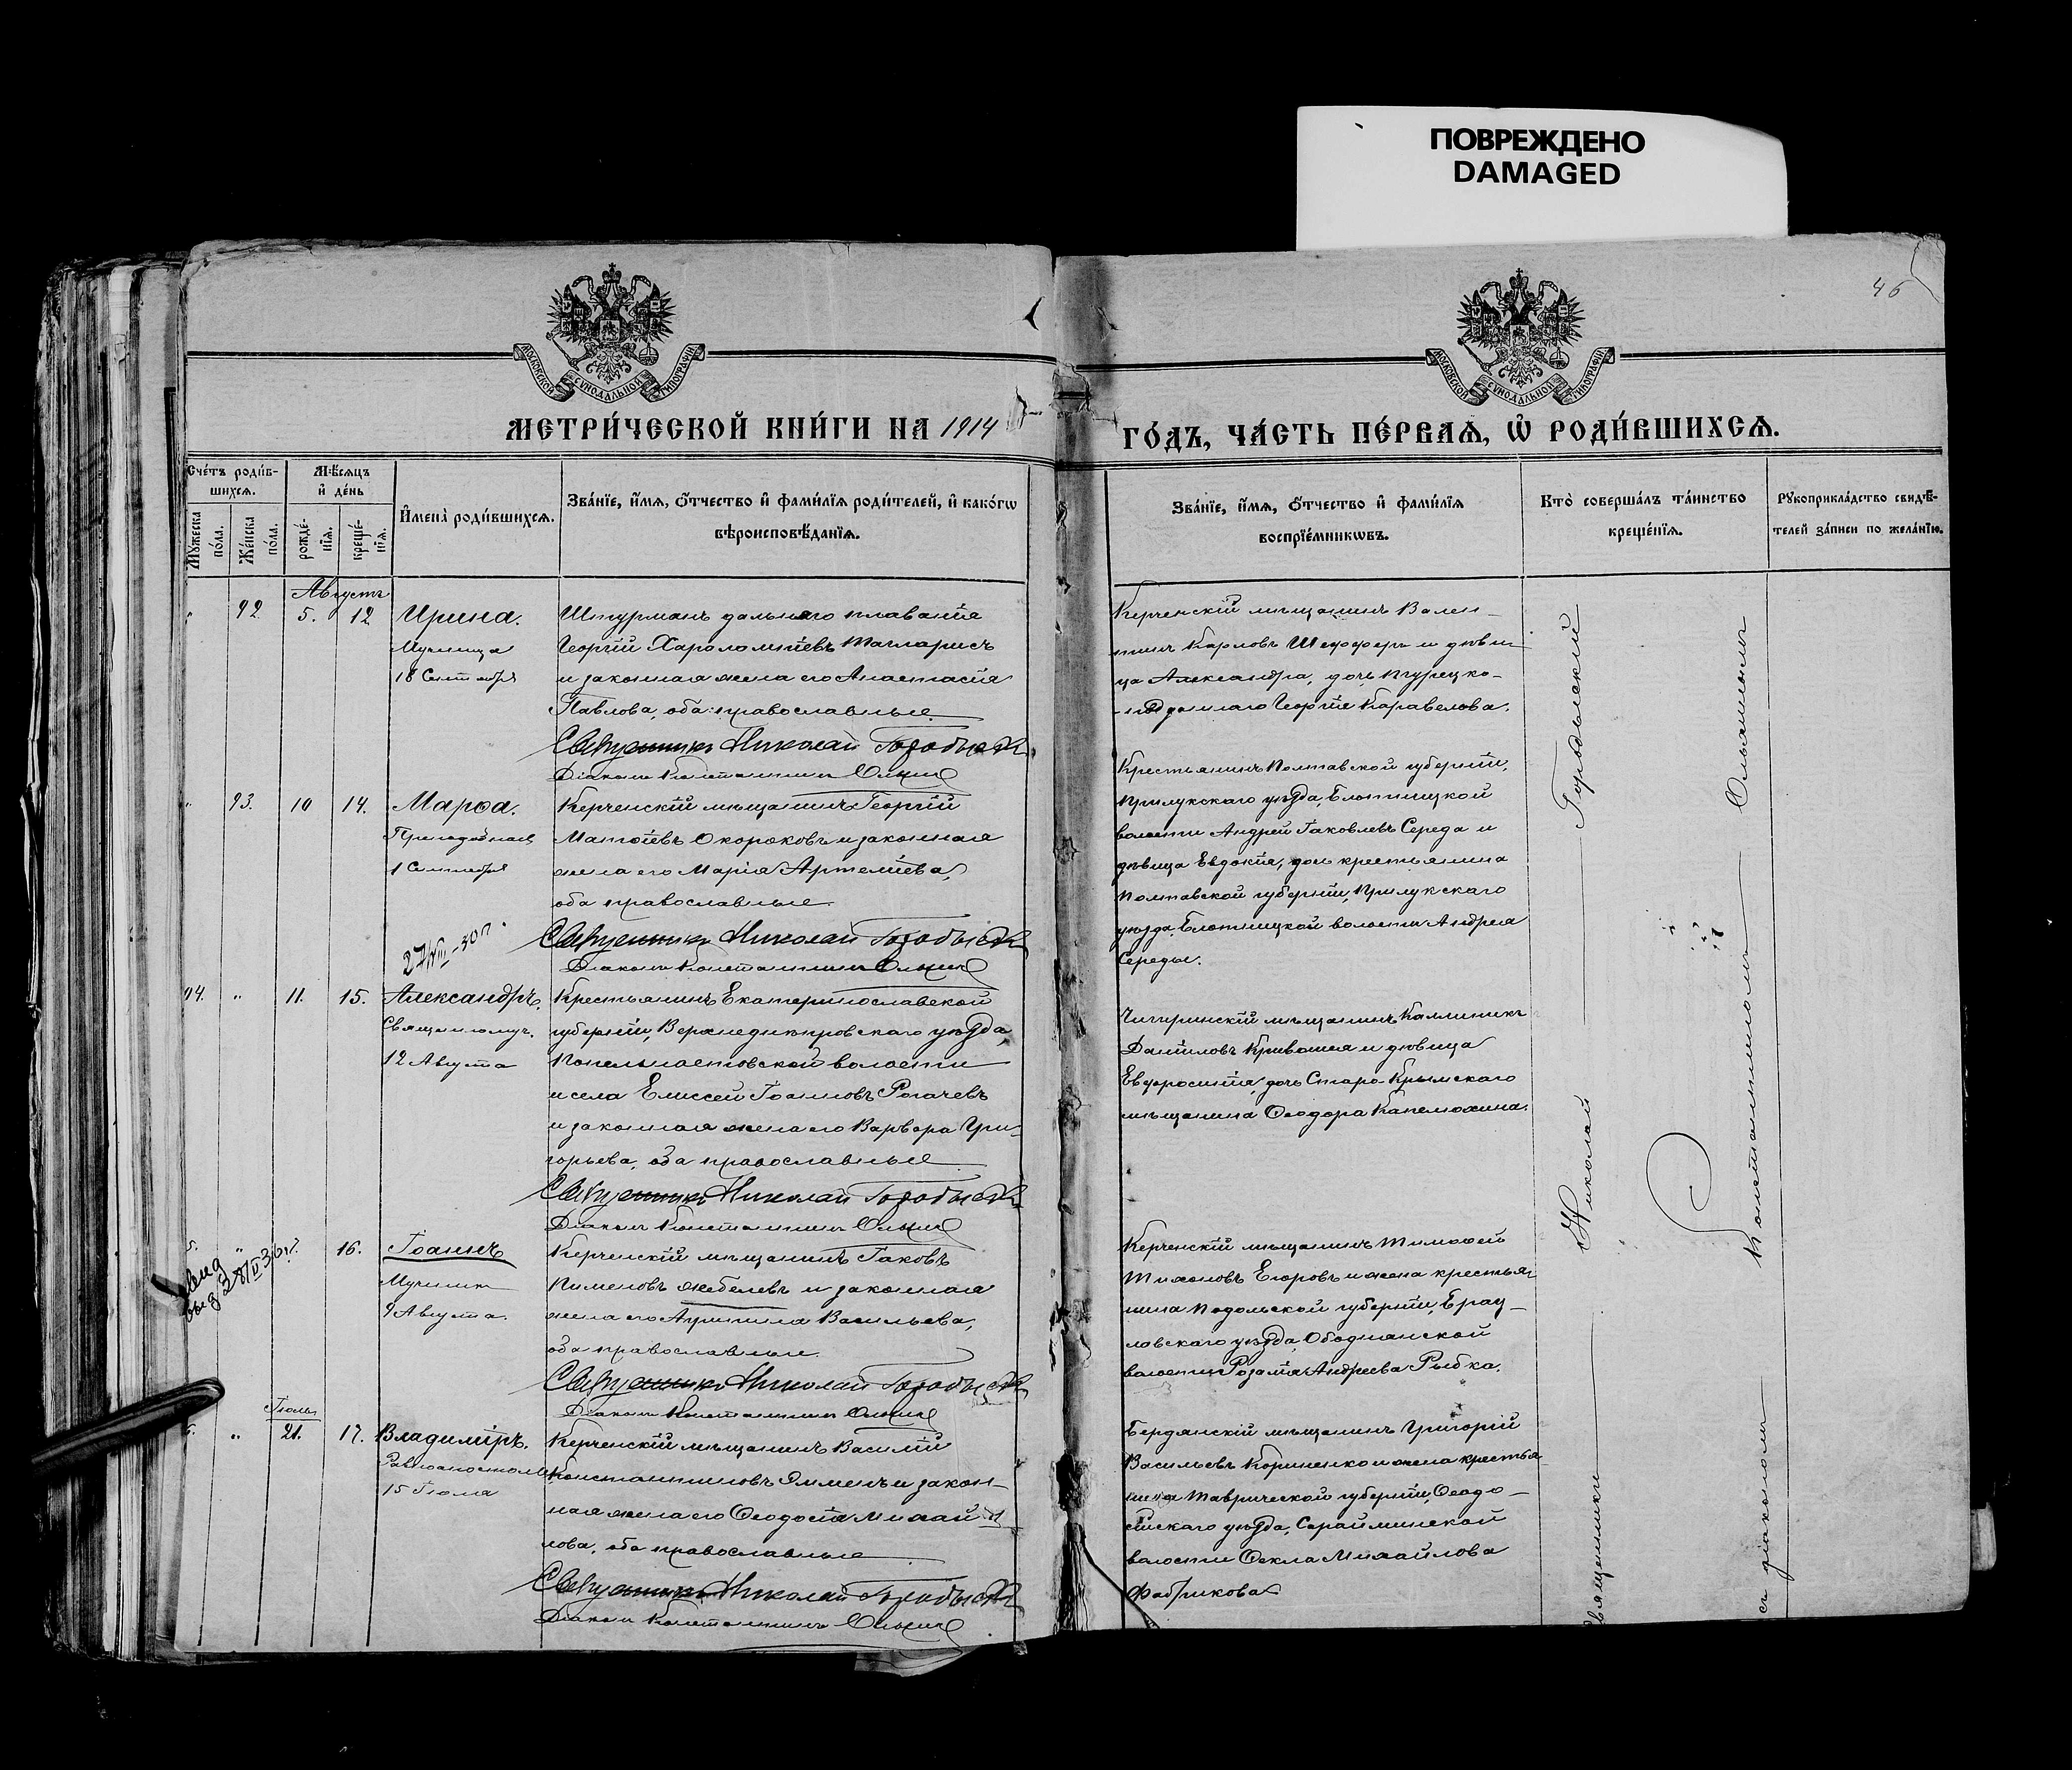 ПОВРЕЖДЕНО
DAMAGED
46
МОСКОВСКОЙ СѴНОДАЛЬНОЙ ТИПОГРАФІИ
МОСКОВСКОЙ СѴНОДАЛЬНОЙ ТИПОГРАФІИ
МЕТРИ́ЧЕСКОЙ КНИ́ГИ НА 1914
ГО́ДЪ, ЧА́СТЬ ПЕ́РВАѦ, Ѡ҆ РОДИ́ВШИХСѦ.
Сче́тъ роди́в-
шихсѧ.
Мꙋ́жеска по́ла.
Же́нска по́ла.
Мѣ́сѧцъ
и҆ де́нь
рожде́-
нїѧ.
креще́-
нїѧ.
И҆мена̀ роди́вшихсѧ.
Зва́нїе, и҆́мѧ, ѻ҆́тчество и҆ фами́лїѧ роди́телей, и҆ како́гѡ
вѣроисповѣ́данїѧ.
Зва́нїе, и҆́мѧ, ѻ҆́тчество и҆ фами́лїѧ
воспрїе́мникѡвъ.
Кто̀ соверша́лъ та́инство
креще́нїѧ.
Рꙋкоприкла́дство свидѣ́-
телей за́писи по жела́нїю.
Августъ
" 92 5. 12 Ирина.
Мученица
18 Сентября
Штурманъ дальняго плаванія
Георгій Харалампіевъ Тагларисъ
и законная жена его Анастасія
Павлова, оба православные.
Священникъ Николай Городыскій
Діаконъ Константинъ
Керченскій мѣщанинъ Вален-
тинъ Карловъ Шефферъ и дѣви-
ца Александра, дочь турецко-
подданнаго Георгія Каравелова.
" 93. 10 14. Марѳа.
Преподобная
1 Сентября
Керченскій мѣщанинъ Георгій
Матѳіевъ Окороковъ и законная
жена его Марія Артеміева,
оба православные
Священникъ Николай Городыскій
Діаконъ Константинъ
Крестьянинъ Полтавской губерніи,
Прилукскаго уѣзда, Блотницкой
волости Андрей Іаковлевъ Середа и
дѣвица Евдокія, дочь крестьянина
Полтавской губерніи, Прилукскаго
уѣзда, Блотницкой волости Андрея
Середы.
94. " 11. 15. Александръ.
Священномуч.
12 Августа
Крестьянинъ Екатеринославской
губерніи, Верхнеднѣпровскаго уѣзда,
волости
и села Елиссей Іоанновъ Рогачевъ
и законная жена его Варвара Гри-
горьева, оба православные
Священникъ Николай Городыскій
Діаконъ Константинъ
Чигиринскій мѣщанинъ Каллиникъ
Даніиловъ Кривошея и дѣвица
Евфросинія, дочь Старо-Крымскаго
мѣщанина Ѳеодора
16. Іоаннъ
Мученикъ
9 Августа.
Керченскій мѣщанинъ Іаковъ
Пименовъ Жебелевъ и законная
жена его Агрипина Васильева,
оба православные.
Священникъ Николай Городыскій
Діаконъ Константинъ
Керченскій мѣщанинъ Тимоѳей
Тихоновъ Егоровъ и жена крестья-
нина Подольской губерніи, Брац-
лавскаго уѣзда, Ободнянской
волости Розалія Андреева Рыбка.
Іюль
" 21. 17. Владиміръ.
Равноапостольн.
15 Іюля
Керченскій мѣщанинъ Василій
Константиновъ и закон-
ная жена его Ѳеодосія Михай-
лова, оба православные
Священникъ Николай Городыскій
Діаконъ Константинъ
Бердянскій мѣщанинъ Григорій
Васильевъ Корниенко и жена крестья-
нина Таврической губерніи, Ѳеодо-
сійскаго уѣзда, Сарайминской
волости Ѳекла Михайлова
Фабрикова
Священникъ Николай Городыскій
съ діакономъ Константиномъ